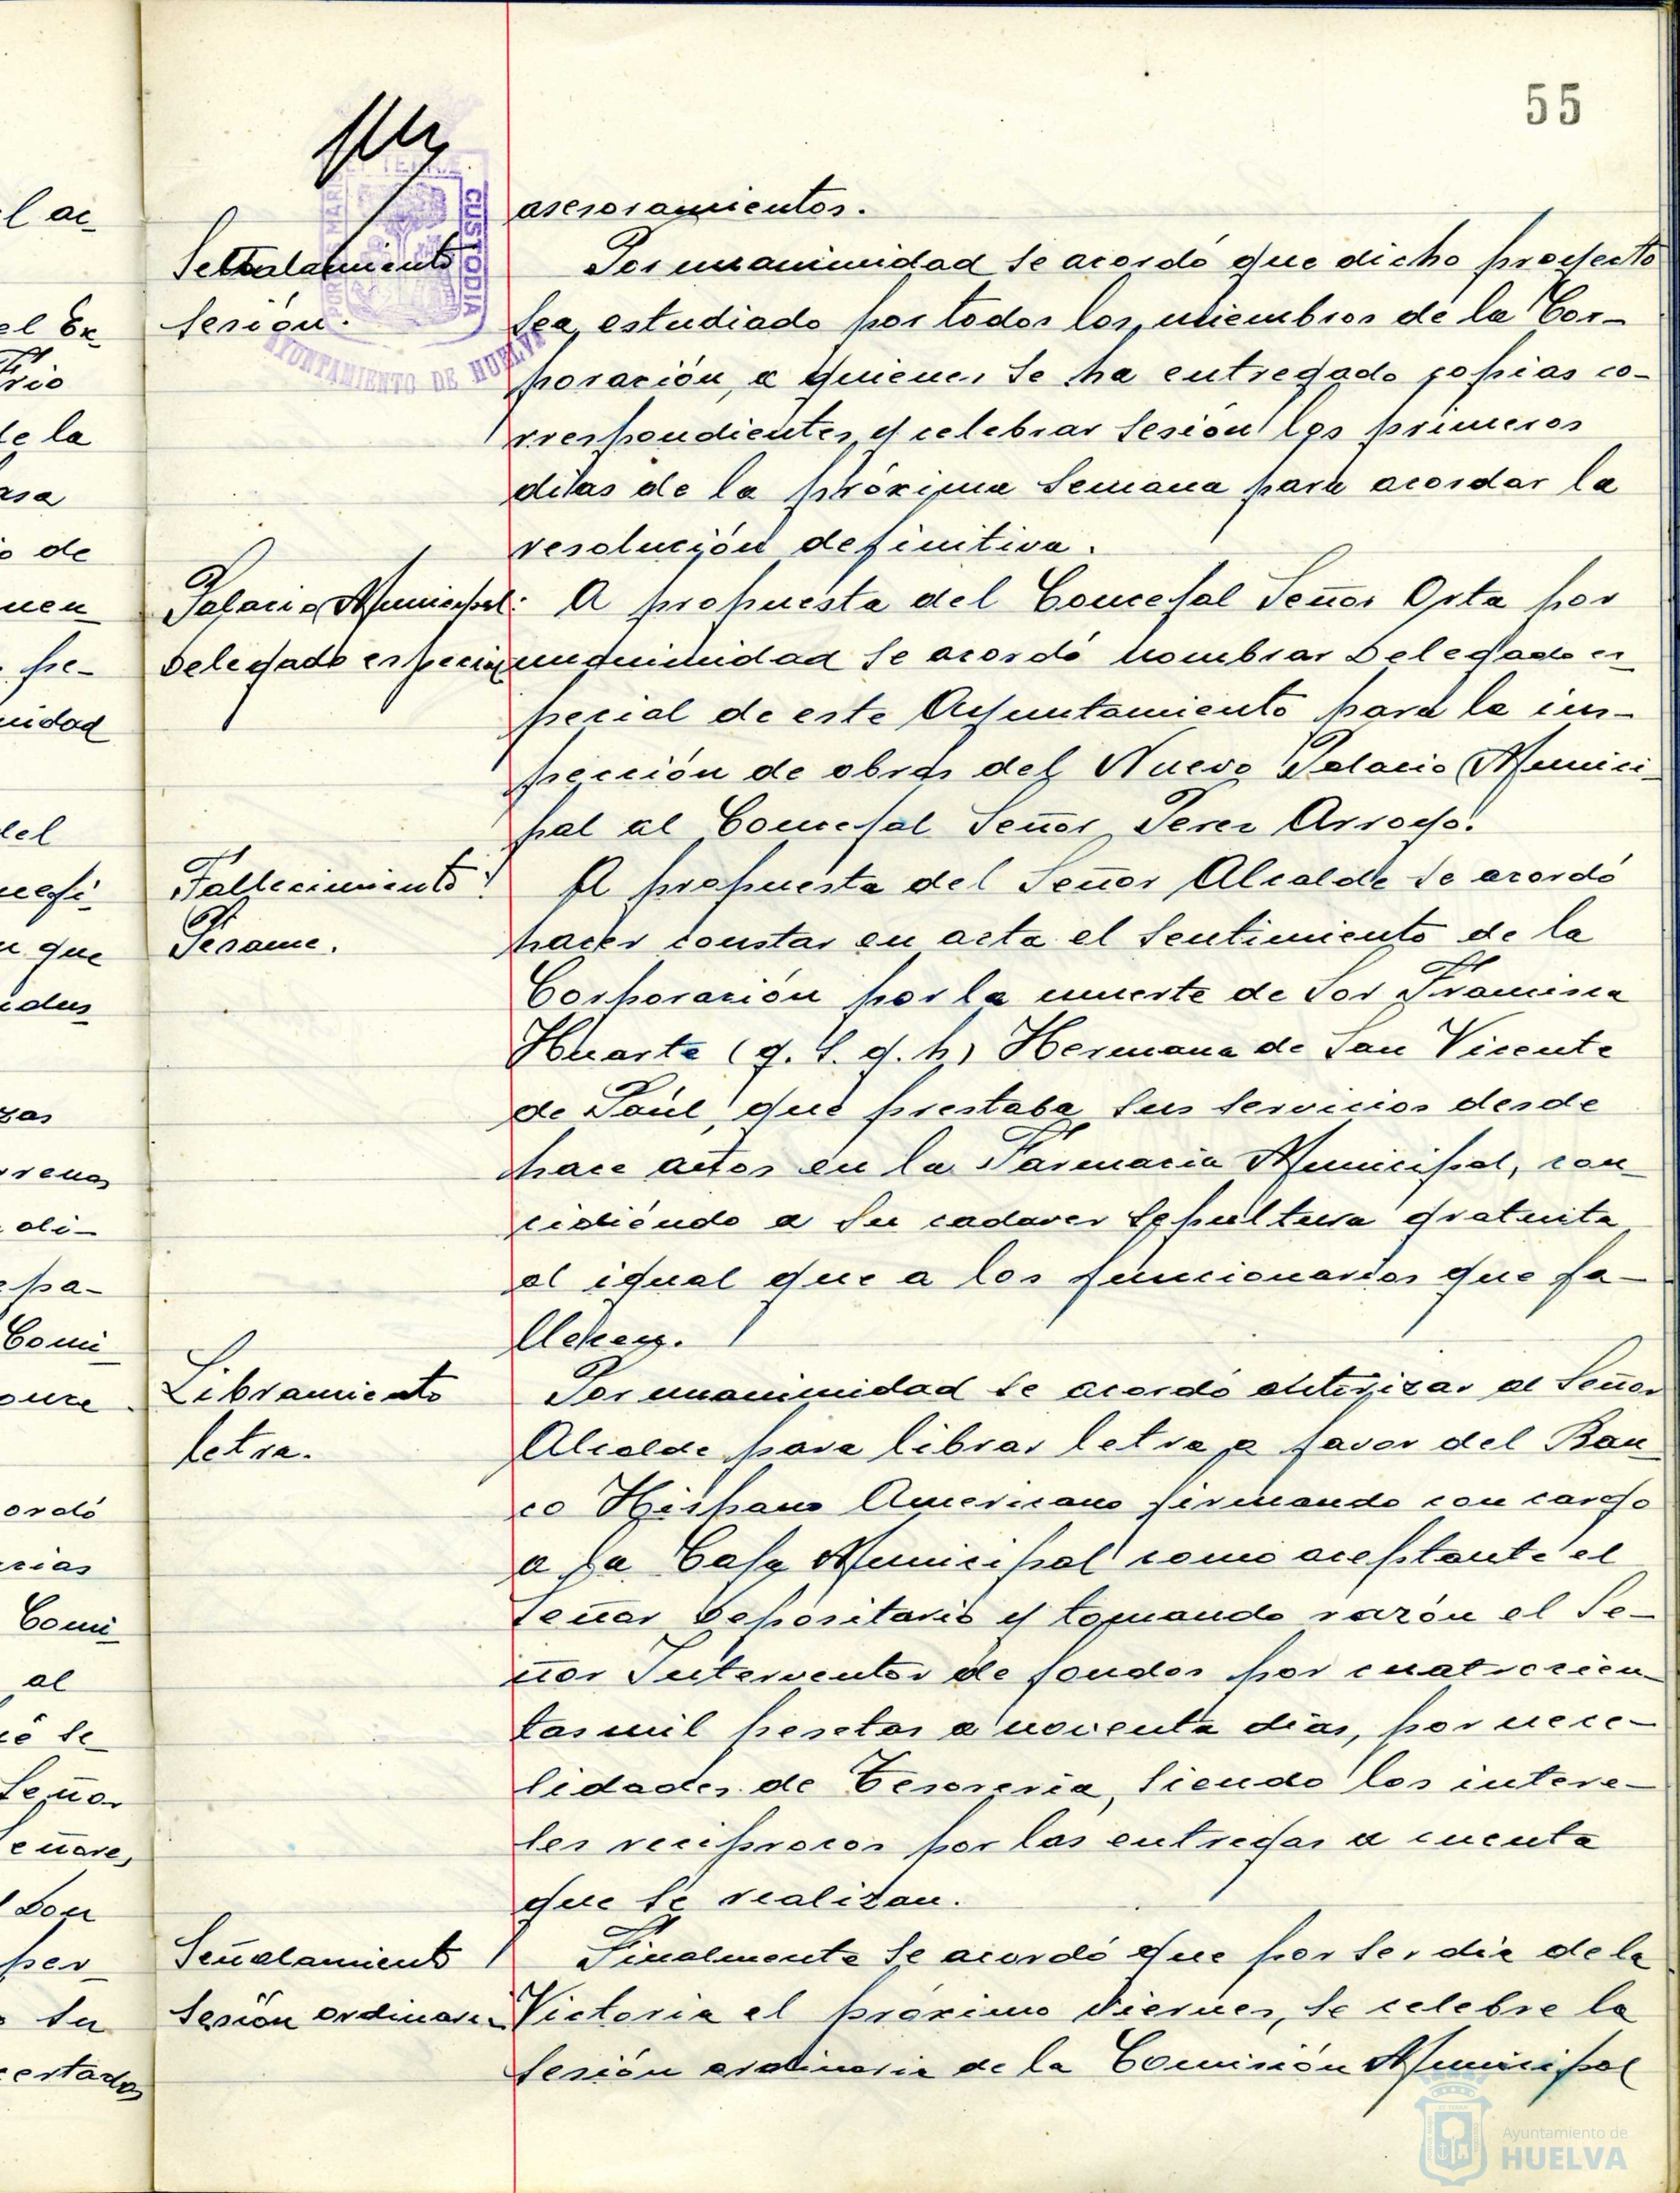 55
asesoramientos.
Señalamiento
sesión.
Por unanimidad se acordó que dicho proyecto
sea estudiado por todos los miembros de la Cor-
poración, a quienes se ha entregado copias co-
rrespondientes, y celebrar sesión los primeros
días de la próxima semana para acordar la
resolución definitiva.
Palacio Municipal.
Delegado especial
A propuesta del Concejal Señor Orta por
unanimidad se acordó nombrar Delegado es
pecial de este Ayuntamiento para la ins-
pección de obras del Nuevo Palacio Munici-
pal al Concejal Señor Perez Arroyo.
Fallecimiento
Pesame.
A propuesta del Señor Alcalde se acordó
hacer constar en acta el sentimiento de la
Corporación por la muerte de Sor Francisca
Huarte (q. s. g. h) Hermana de San Vicente
de Paúl, que prestaba sus servicios desde
hace años en la Farmacia Municipal, con-
cidiéndo a su cadaver sepultura gratuita,
al igual que a los funcionarios que fa-
llecen.
Libramiento
letra.
Por unanimidad se acordó autorizar al Señor
Alcalde para librar letra a favor del Ban
co Hispano Americano firmando con cargo
a la Caja Municipal como aceptante el
Señor Depositario y tomando razón el Se-
ñor Interventor de fondos por cuatrocien-
tas mil pesetas a noventa días, por nece-
sidades de Tesorería, siendo los intere-
ses reciprocos por las entregas a cuenta
que se realizan.
Señalamiento
Sesión ordinaria
Finalmente se acordó que por ser día de la
Victoria el próximo Viernes, se celebre la
sesión ordinaria de la Comisión Municipal
CUSTODIA
AYUNTAMIENTO DE HUELVA
l ac
el Ex
rio
de la
asa
o de
nen
pe-
nidad
del
nefi
n que
idus
zas
rrenos
di-
epa-
Comi
once
ordó
cias
Comi
al
ió se
Señor
eñores
Don
per
o su
certados
Ayuntamiento de
HUELVA